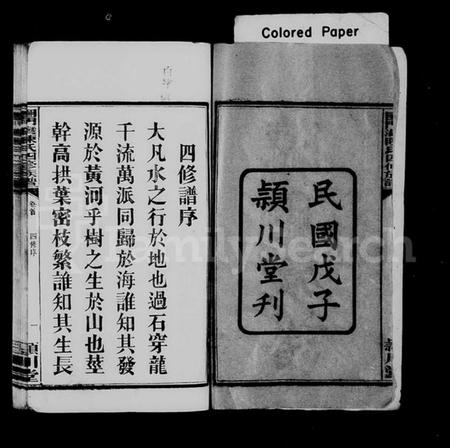 Colored Paper
民國戊子
潁川堂刊
四修譜序
大凡水之行於地也過石穿龍
千流萬派同歸於海誰知其發
源於黃河乎樹之生於山也莖
幹高拱葉密枝繁誰知其生長
卷首
四修序
一
潁川堂
familysearch